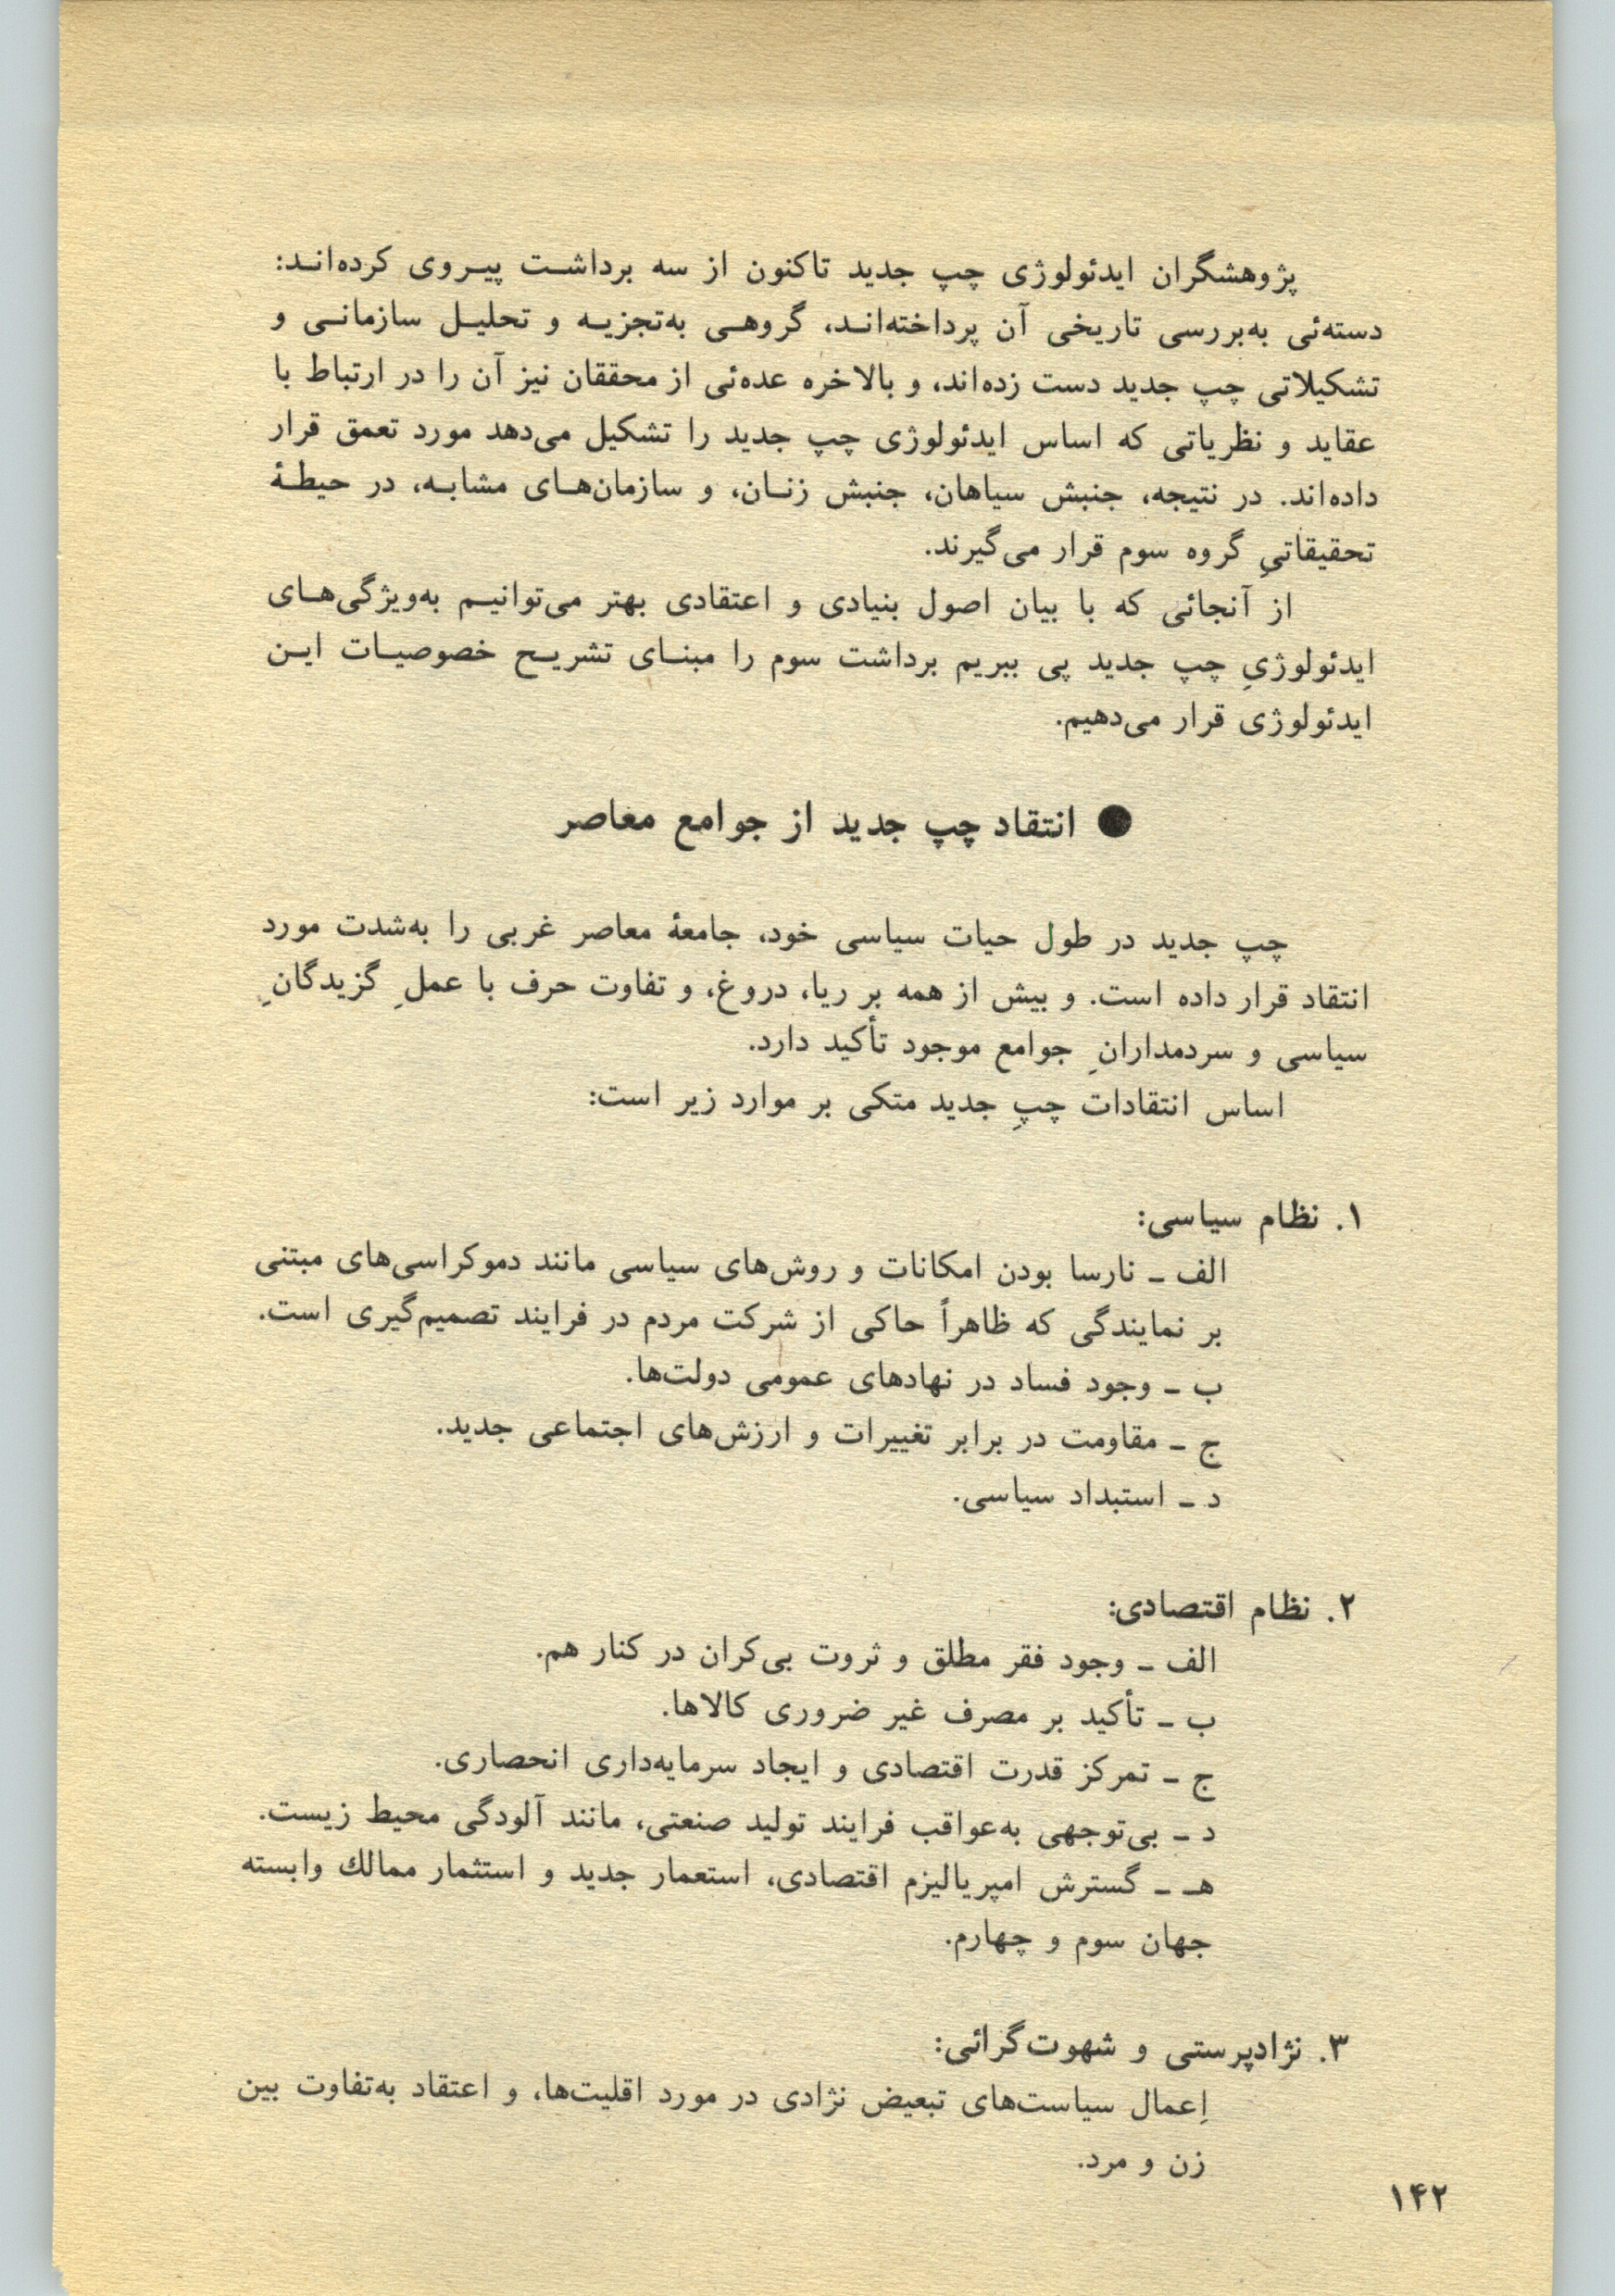 پژوهشگران ایدئولوژی چپ جدید تاکنون از سه برداشت پیروی کرده‌اند:
دسته‌ئی به‌بررسی تاریخی آن پرداخته‌اند، گروهی به‌تجزیه و تحلیل سازمانی و
تشکیلاتی چپ جدید دست زده‌اند، و بالاخره عده‌ئی از محققان نیز آن را در ارتباط با
عقاید و نظریاتی که اساس ایدئولوژی چپ جدید را تشکیل می‌دهد مورد تعمق قرار
داده‌اند. در نتیجه، جنبش سیاهان، جنبش زنان، و سازمان‌های مشابه، در حیطهٔ
تحقیقاتیِ گروه سوم قرار می‌گیرند.
از آنجائی که با بیان اصول بنیادی و اعتقادی بهتر می‌توانیم به‌ویژگی‌های
ایدئولوژیِ چپ جدید پی ببریم برداشت سوم را مبنای تشریح خصوصیات این
ایدئولوژی قرار می‌دهیم.
● انتقاد چپ جدید از جوامع معاصر
چپ جدید در طول حیات سیاسی خود، جامعهٔ معاصر غربی را به‌شدت مورد
انتقاد قرار داده است. و بیش از همه بر ریا، دروغ، و تفاوت حرف با عملِ گزیدگانِ
سیاسی و سردمدارانِ جوامع موجود تأکید دارد.
اساس انتقادات چپِ جدید متکی بر موارد زیر است:
۱. نظام سیاسی:
الف ـ نارسا بودن امکانات و روش‌های سیاسی مانند دموکراسی‌های مبتنی
بر نمایندگی که ظاهراً حاکی از شرکت مردم در فرایند تصمیم‌گیری است.
ب ـ وجود فساد در نهادهای عمومی دولت‌ها.
ج ـ مقاومت در برابر تغییرات و ارزش‌های اجتماعی جدید.
د ـ استبداد سیاسی.
۲. نظام اقتصادی:
الف ـ وجود فقر مطلق و ثروت بی‌کران در کنار هم.
ب ـ تأکید بر مصرف غیر ضروری کالاها.
ج ـ تمرکز قدرت اقتصادی و ایجاد سرمایه‌داری انحصاری.
د ـ بی‌توجهی به‌عواقب فرایند تولید صنعتی، مانند آلودگی محیط زیست.
هـ ـ گسترش امپریالیزم اقتصادی، استعمار جدید و استثمار ممالك وابسته
جهان سوم و چهارم.
۳. نژادپرستی و شهوت‌گرائی:
اِعمال سیاست‌های تبعیض نژادی در مورد اقلیت‌ها، و اعتقاد به‌تفاوت بین
زن و مرد.
۱۴۲